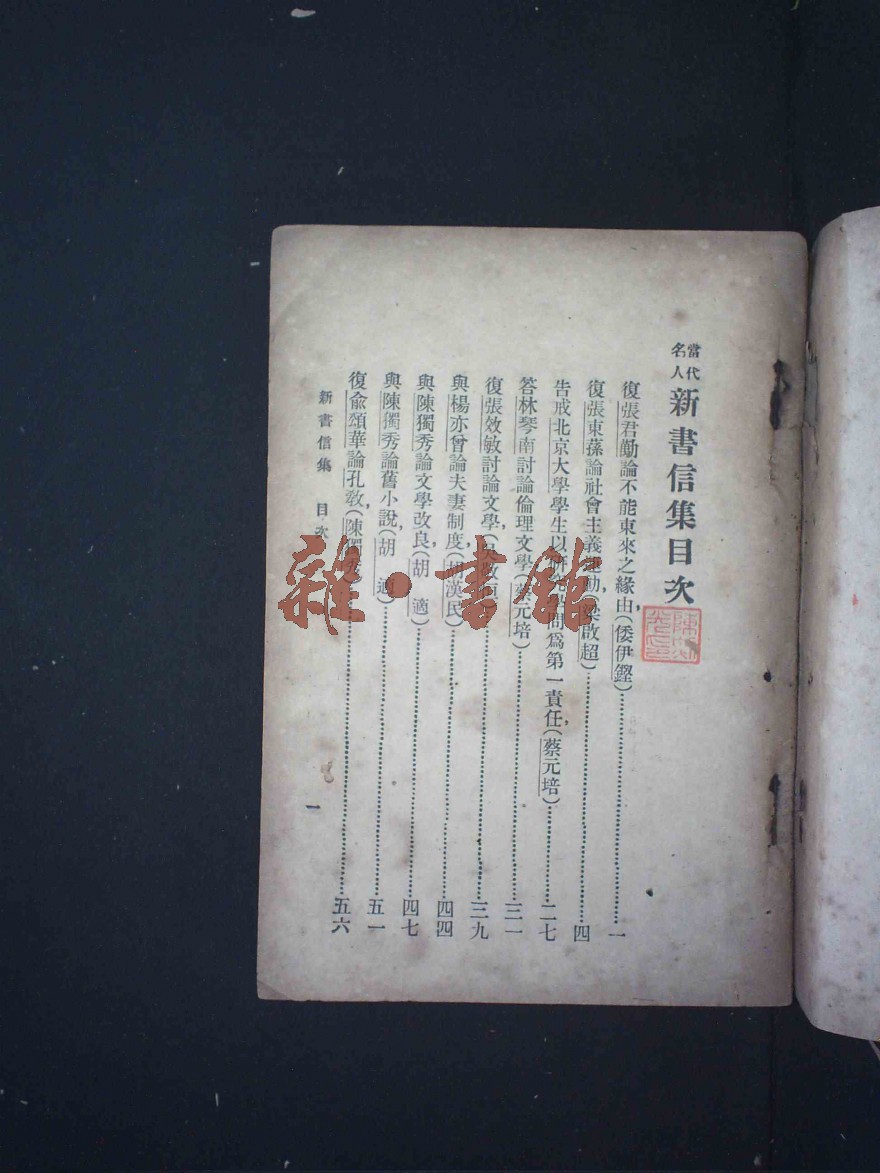 當代名人新書信集目次
復張君勱論不能東來之緣由，(倭伊鏗)…………一
復張東蓀論社會主義運動，(梁啟超)…………四
告戒北京大學學生以研究學問爲第一責任，(蔡元培)…………二七
答林琴南討論倫理文學，(蔡元培)…………三一
復張效敏討論文學，(吳敬恆)…………三九
與楊亦曾論夫妻制度，(胡漢民)…………四四
與陳獨秀論文學改良，(胡適)…………四七
與陳獨秀論舊小說，(胡適)…………五一
復俞頌華論孔教，(陳獨秀)…………五六
新書信集 目次
一
雜·書館